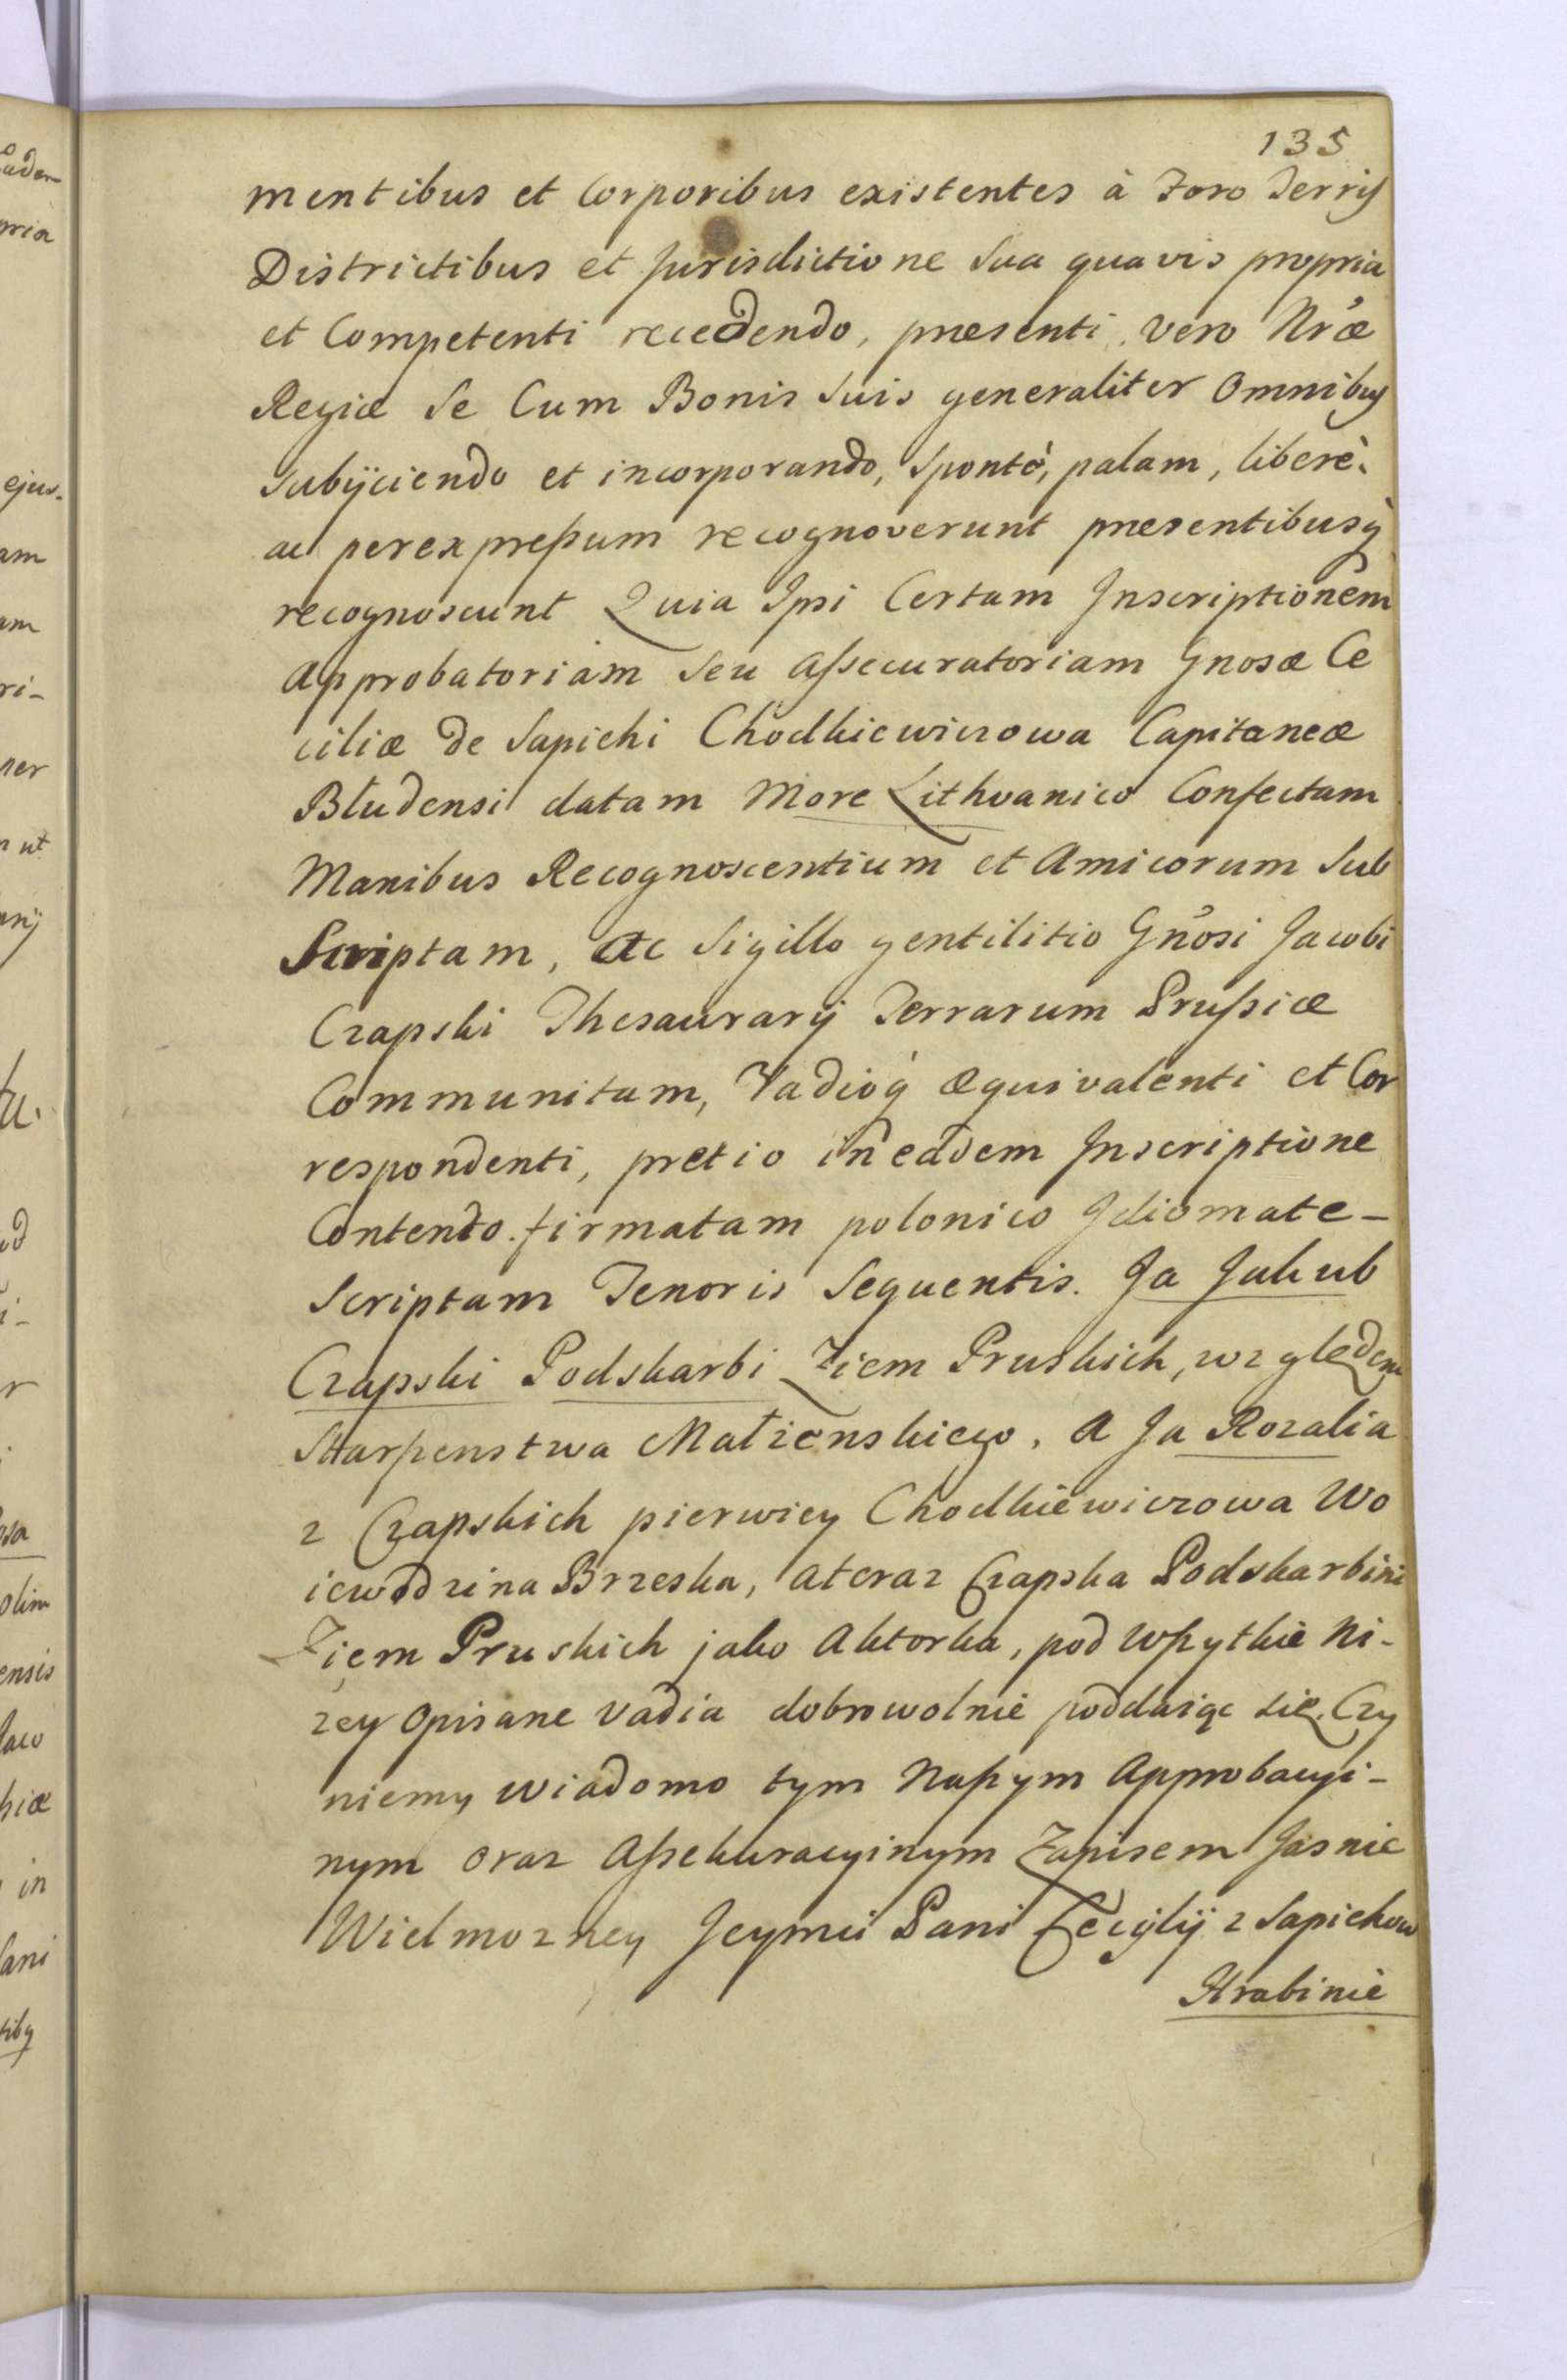 135
mentibus et Corporibus existentes à Foro Terris
Districtibus et Jurisdictione Sua quavis propria
et Competenti recedendo, præsenti vero Nræ
Regiæ Se Cum Bonis Suis generaliter Omnibus
Subijciendo et incorporando, Spontè, palam, liberè
ac per expreßum recognoverunt præsentibusq̀
recognoscunt Quia Ipsi Certam Inscriptionem
Approbatoriam Seu Aßecuratoriam Gnosæ Ce
ciliæ De Sapiehi Chodkiewiczowa Capitaneæ
Błudensi datam More Lithvanico Confectam
Manibus Recognoscentium et Amicorum Sub
Scriptam, Ac Sigillo gentilitio Gnosi Jacobi
Czapski Thesaurarij Terrarum Prußiæ
Communitam, Vadioq̀ æquivalenti et Cor
respondenti, pretio in eadem Inscriptione
Contento firmatam polonico Jdiomate-
Scriptam Tenoris Sequentis. Ja Jakub
Czapski Podskarbi Ziem Pruskich, względem
Starßenstwa Małzenskiego, A Ja Rozalia
z Czapskich pierwiey Chodkiewiczowa Wo
iewodzina Brzeska, Ateraz Czapska Podskarbini
Ziem Pruskich jako Aktorka, pod Wßytkie Ni-
zey Opisane Vadia dobrowolnie poddaiąc się. Czy
niemy Wiadomo tym Naßym Approbacyi-
nym Oraz Aßekuracyinym Zapisem Jasnie
Wielmozney Jeymci Pani Cecylij z Sapiehow
Hrabinie